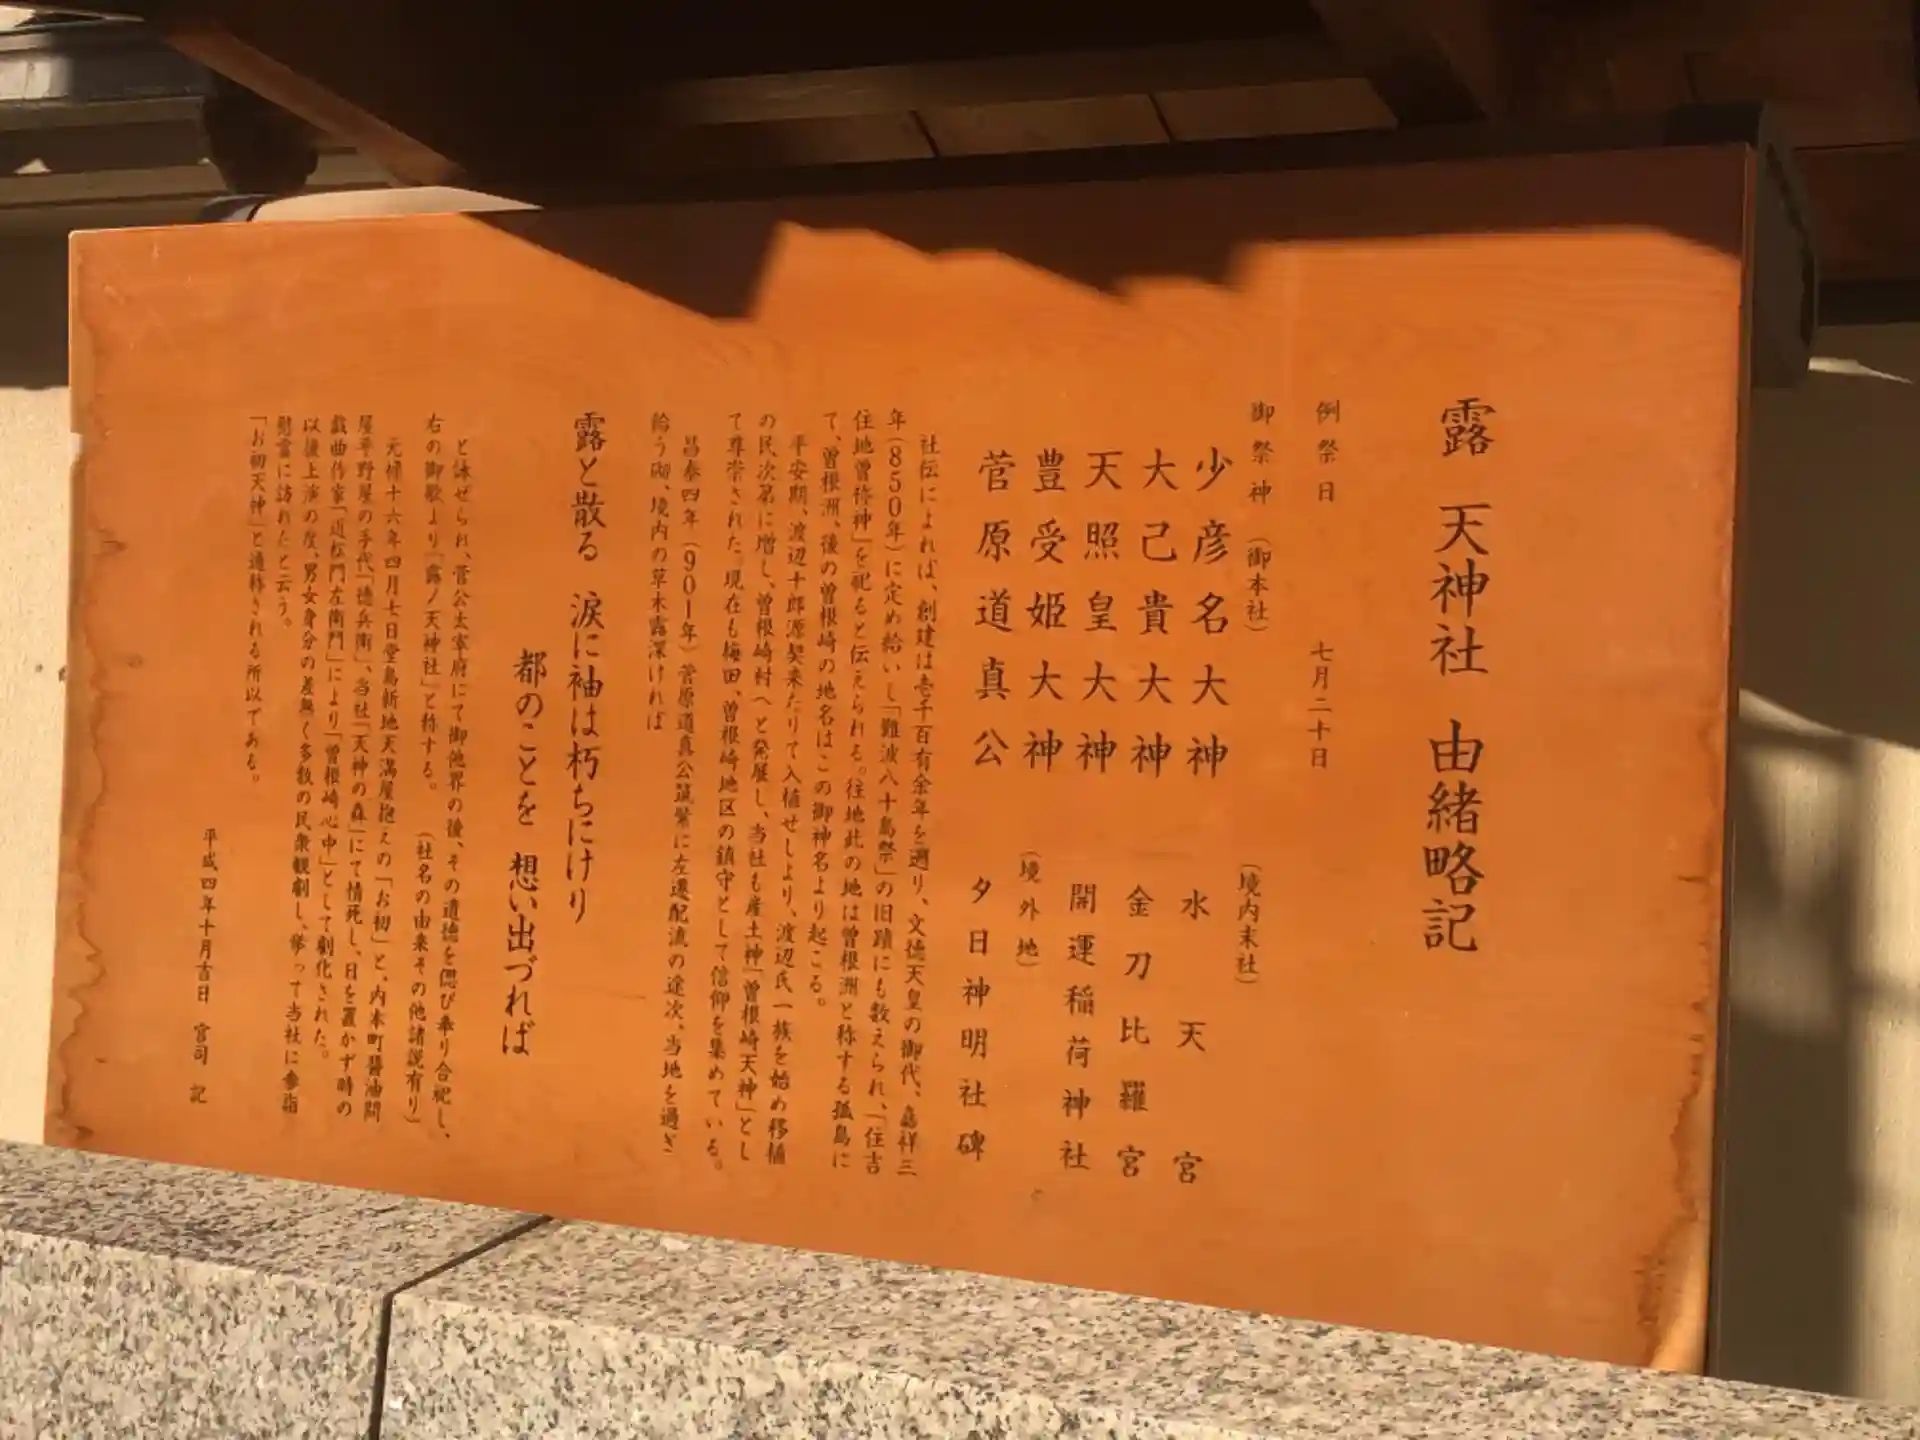 露 天神社 由緒略記
例祭日 七月二十日
御祭神(御本社)
少彦名大神
大己貴大神
天照皇大神
豊受姫大神
菅原道真公
(境内末社)
水天宮
金刀比羅宮
開運稲荷神社
(境外地)
夕日神明社碑
社伝によれば、創建は壱千百有余年を遡り、文徳天皇の御代、嘉祥三
年(850年)に定め給いし「難波八十島祭」の旧蹟にも数えられ、「住吉
住地曽祢神」を祀ると伝えられる。往地此の地は曽根洲と称する孤島に
て、曽根洲、後の曽根崎の地名はこの御神名より起こる。
平安期、渡辺十郎源契来たりて入植せしより、渡辺氏一族を始め移植
の民次第に増し、曽根崎村へと発展し、当社も産土神「曽根崎天神」とし
て尊崇された。現在も梅田、曽根崎地区の鎮守として信仰を集めている。
昌泰四年(901年)菅原道真公筑紫に左遷配流の途次、当地を過ぎ
給う砌、境内の草木露深ければ
露と散る 涙に袖は朽ちにけり
都のことを 想い出づれば
と詠ぜられ、菅公太宰府にて御他界の後、その遺徳を偲び奉り合祀し、
右の御歌より「露ノ天神社」と称する。 (社名の由来その他諸説有り)
元禄十六年四月七日堂島新地天満屋抱えの「お初」と、内本町醤油問
屋平野屋の手代「徳兵衛」、当社「天神の森」にて情死し、日を置かず時の
戯曲作家「近松門左衛門」により「曽根崎心中」として劇化された。
以後上演の度、男女身分の差無く多数の民衆観劇し、挙って当社に参詣
慰霊に訪れたと云う。
「お初天神」と通称される所以である。
平成四年十月吉日 宮司 記